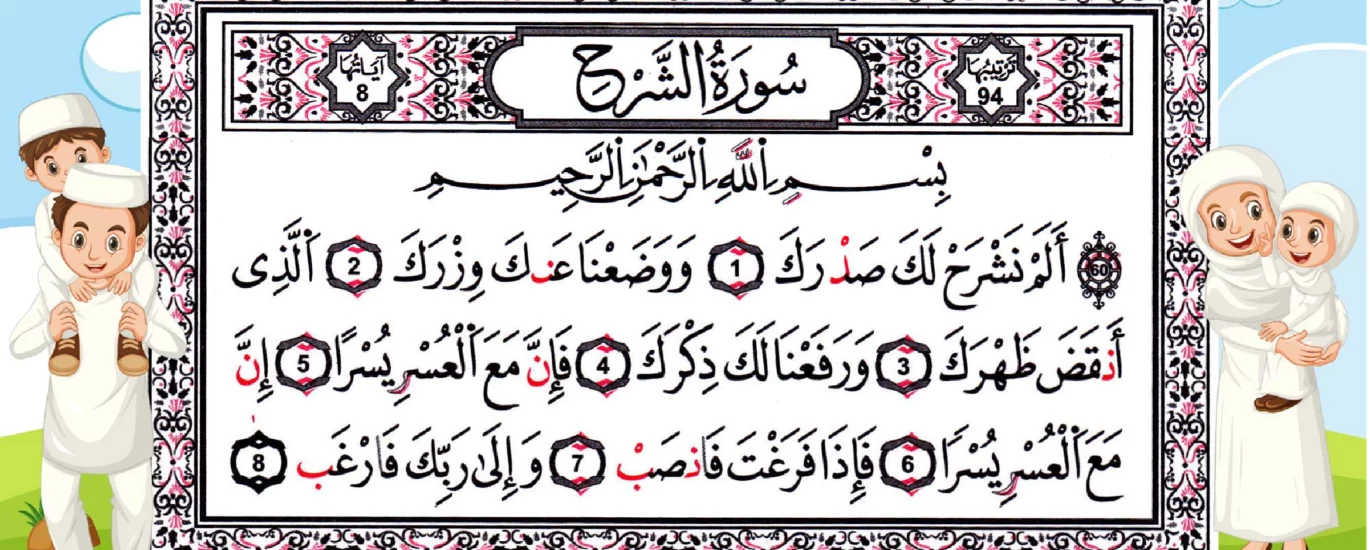 ترتيبها 94
سُورَةُ الشَّرْحِ
آياتها 8
بِسْمِ اِ۬للَّهِ اِ۬لرَّحْمَٰنِ اِ۬لرَّحِيمِ
60 أَلَمْ نَشْرَحْ لَكَ صَدْرَكَ 1 وَوَضَعْنَا عَنكَ وِزْرَكَ 2 اَ۬لَّذِى
أَنقَضَ ظَهْرَكَ 3 وَرَفَعْنَا لَكَ ذِكْرَكَ 4 فَإِنَّ مَعَ اَ۬لْعُسْرِ يُسْرًا 5 إِنَّ
مَعَ اَ۬لْعُسْرِ يُسْرًا 6 فَإِذَا فَرَغْتَ فَانصَبْ 7 وَإِلَىٰ رَبِّكَ فَارْغَب 8